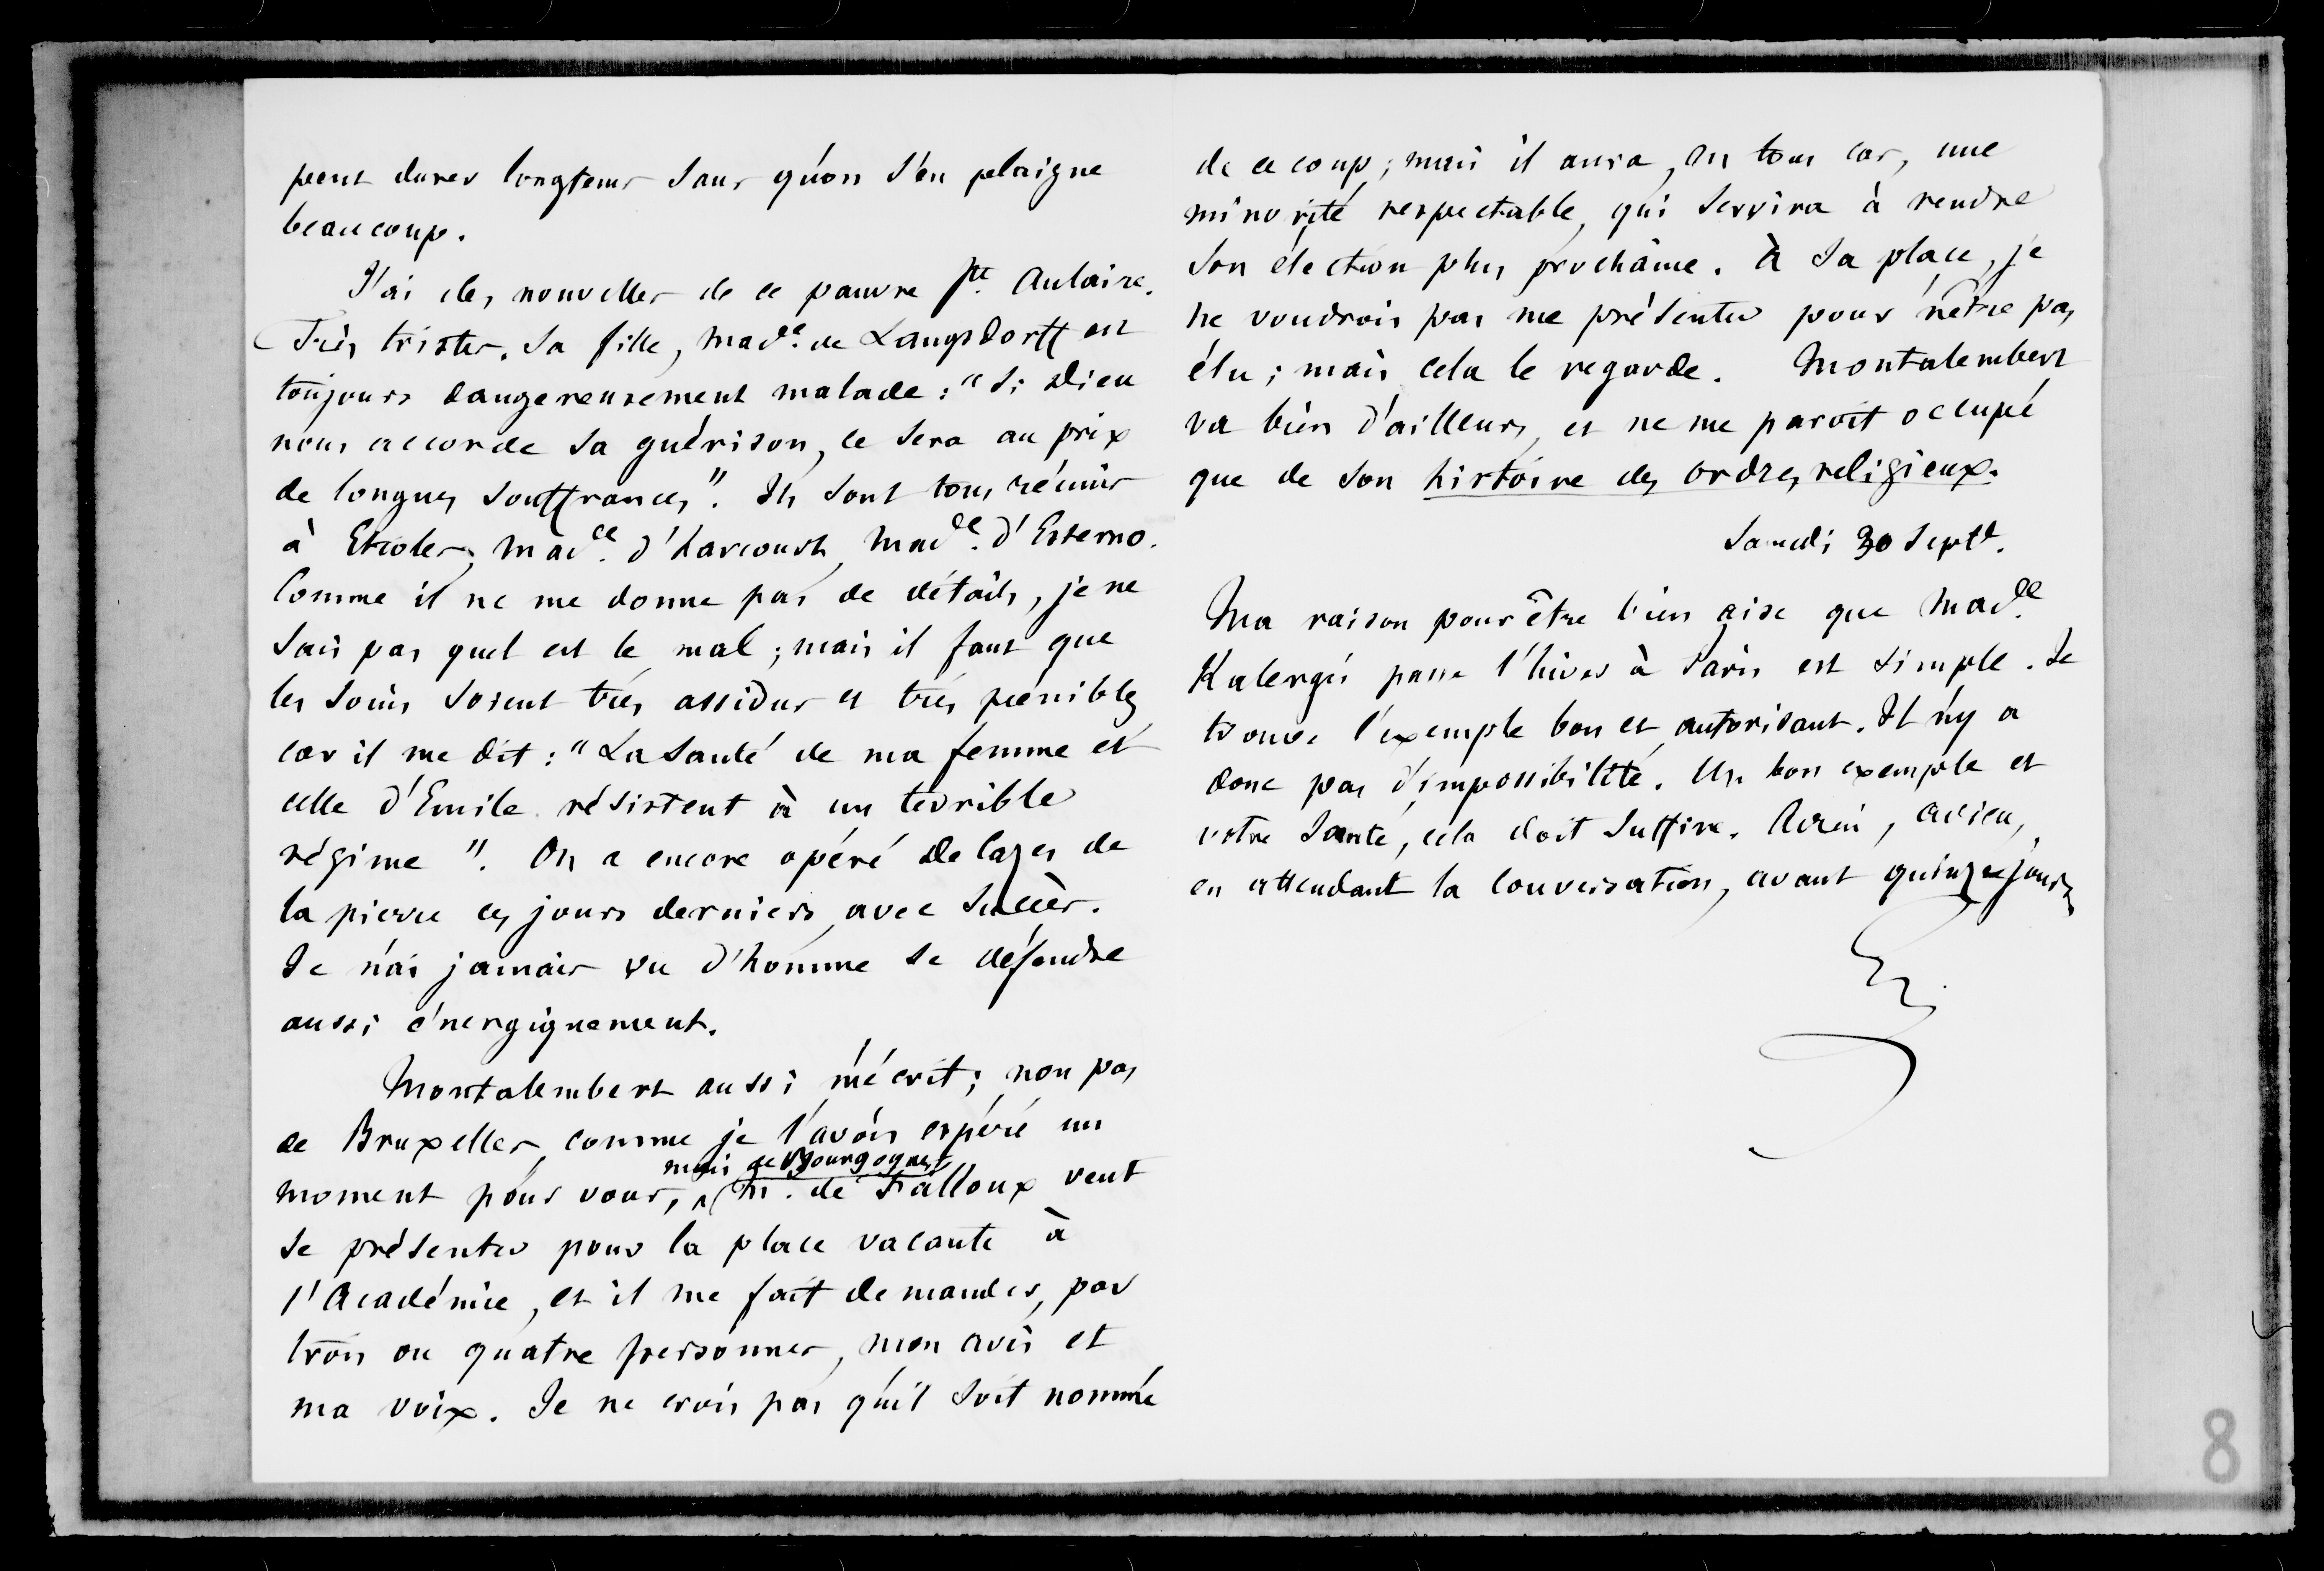 peut durer longtems sans qu'on s'en plaigne
beaucoup.
J'ai des nouvelles de ce pauvre Ste. Aulaire.
Très tristes. Sa fille, Made. de Langsdorff est
toujours dangereusement malade : "Si Dieu
nous accorde sa guérison, ce sera au prix
de longues souffrances". Ils sont tous réunis
à Etioles, Made. d'harcourt, Made. d'Esterno.
Comme il ne me donne pas de détails, je ne
sais pas quel est le mal ; mais il faut que
les soins soient très assidus et très pénibles
car il me dit : "La santé de ma femme et
celle d'Emile résistent à un terrible
régime". On a encore opéré de lazes de
la pierre ces jours derniers, avec succès.
Je n'ai jamais vu d'homme se défendre
aussi énergiquement.
Montalembert aussi m'écrit ; non pas
de Bruxelles, comme je l'avois espéré un
mais de Bourgogne
moment pour vous, M. de Falloux veut
se présenter pour la place vacante à
l'Académie, et il me fait demander, par
trois ou quatre personnes, mon avis et
ma voix. Je ne crois pas qu'il soit nommé
de ce coup ; mais il aura, en tous cas, une
minorité respectable, qui servira à rendre
son élection plus prochaine. à sa place, je
ne voudrois pas me présenter pour n'être pas
élu ; mais cela le regarde. Montalembert
va bien d'ailleurs, et ne me paroit occupé
que de son histoire des ordres religieux.
Samedi 30 Septe.
Ma raison pour être bien aise que Made.
Kalergis passe l'hiver à Paris est simple. Je
trouve l'exemple bon et autorisant. Il n'y a
donc pas d'impossibilité. Un bon exemple et
votre santé, cela doit suffire. Adieu, adieu,
en attendant la conversation, avant quinze jours
8